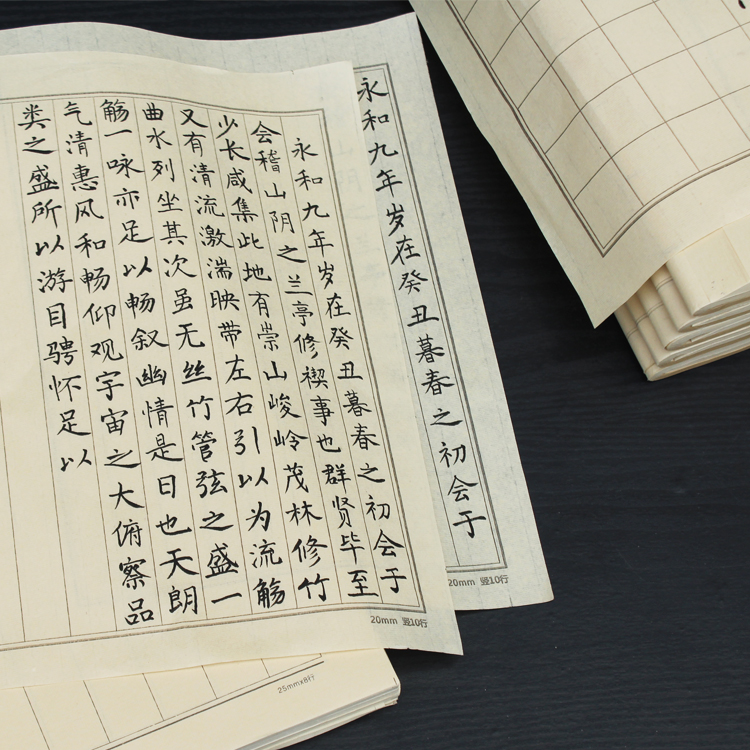 永和九年岁在癸丑暮春之初会于
20mm 竖10行
永和九年岁在癸丑暮春之初会于
会稽山阴之兰亭修禊事也群贤毕至
少长咸集此地有崇山峻岭茂林修竹
又有清流激湍映带左右引以为流觞
曲水列坐其次虽无丝竹管弦之盛一
觞一咏亦足以畅叙幽情是日也天朗
气清惠风和畅仰观宇宙之大俯察品
类之盛所以游目骋怀足以
20mm 竖10行
25mmx8行